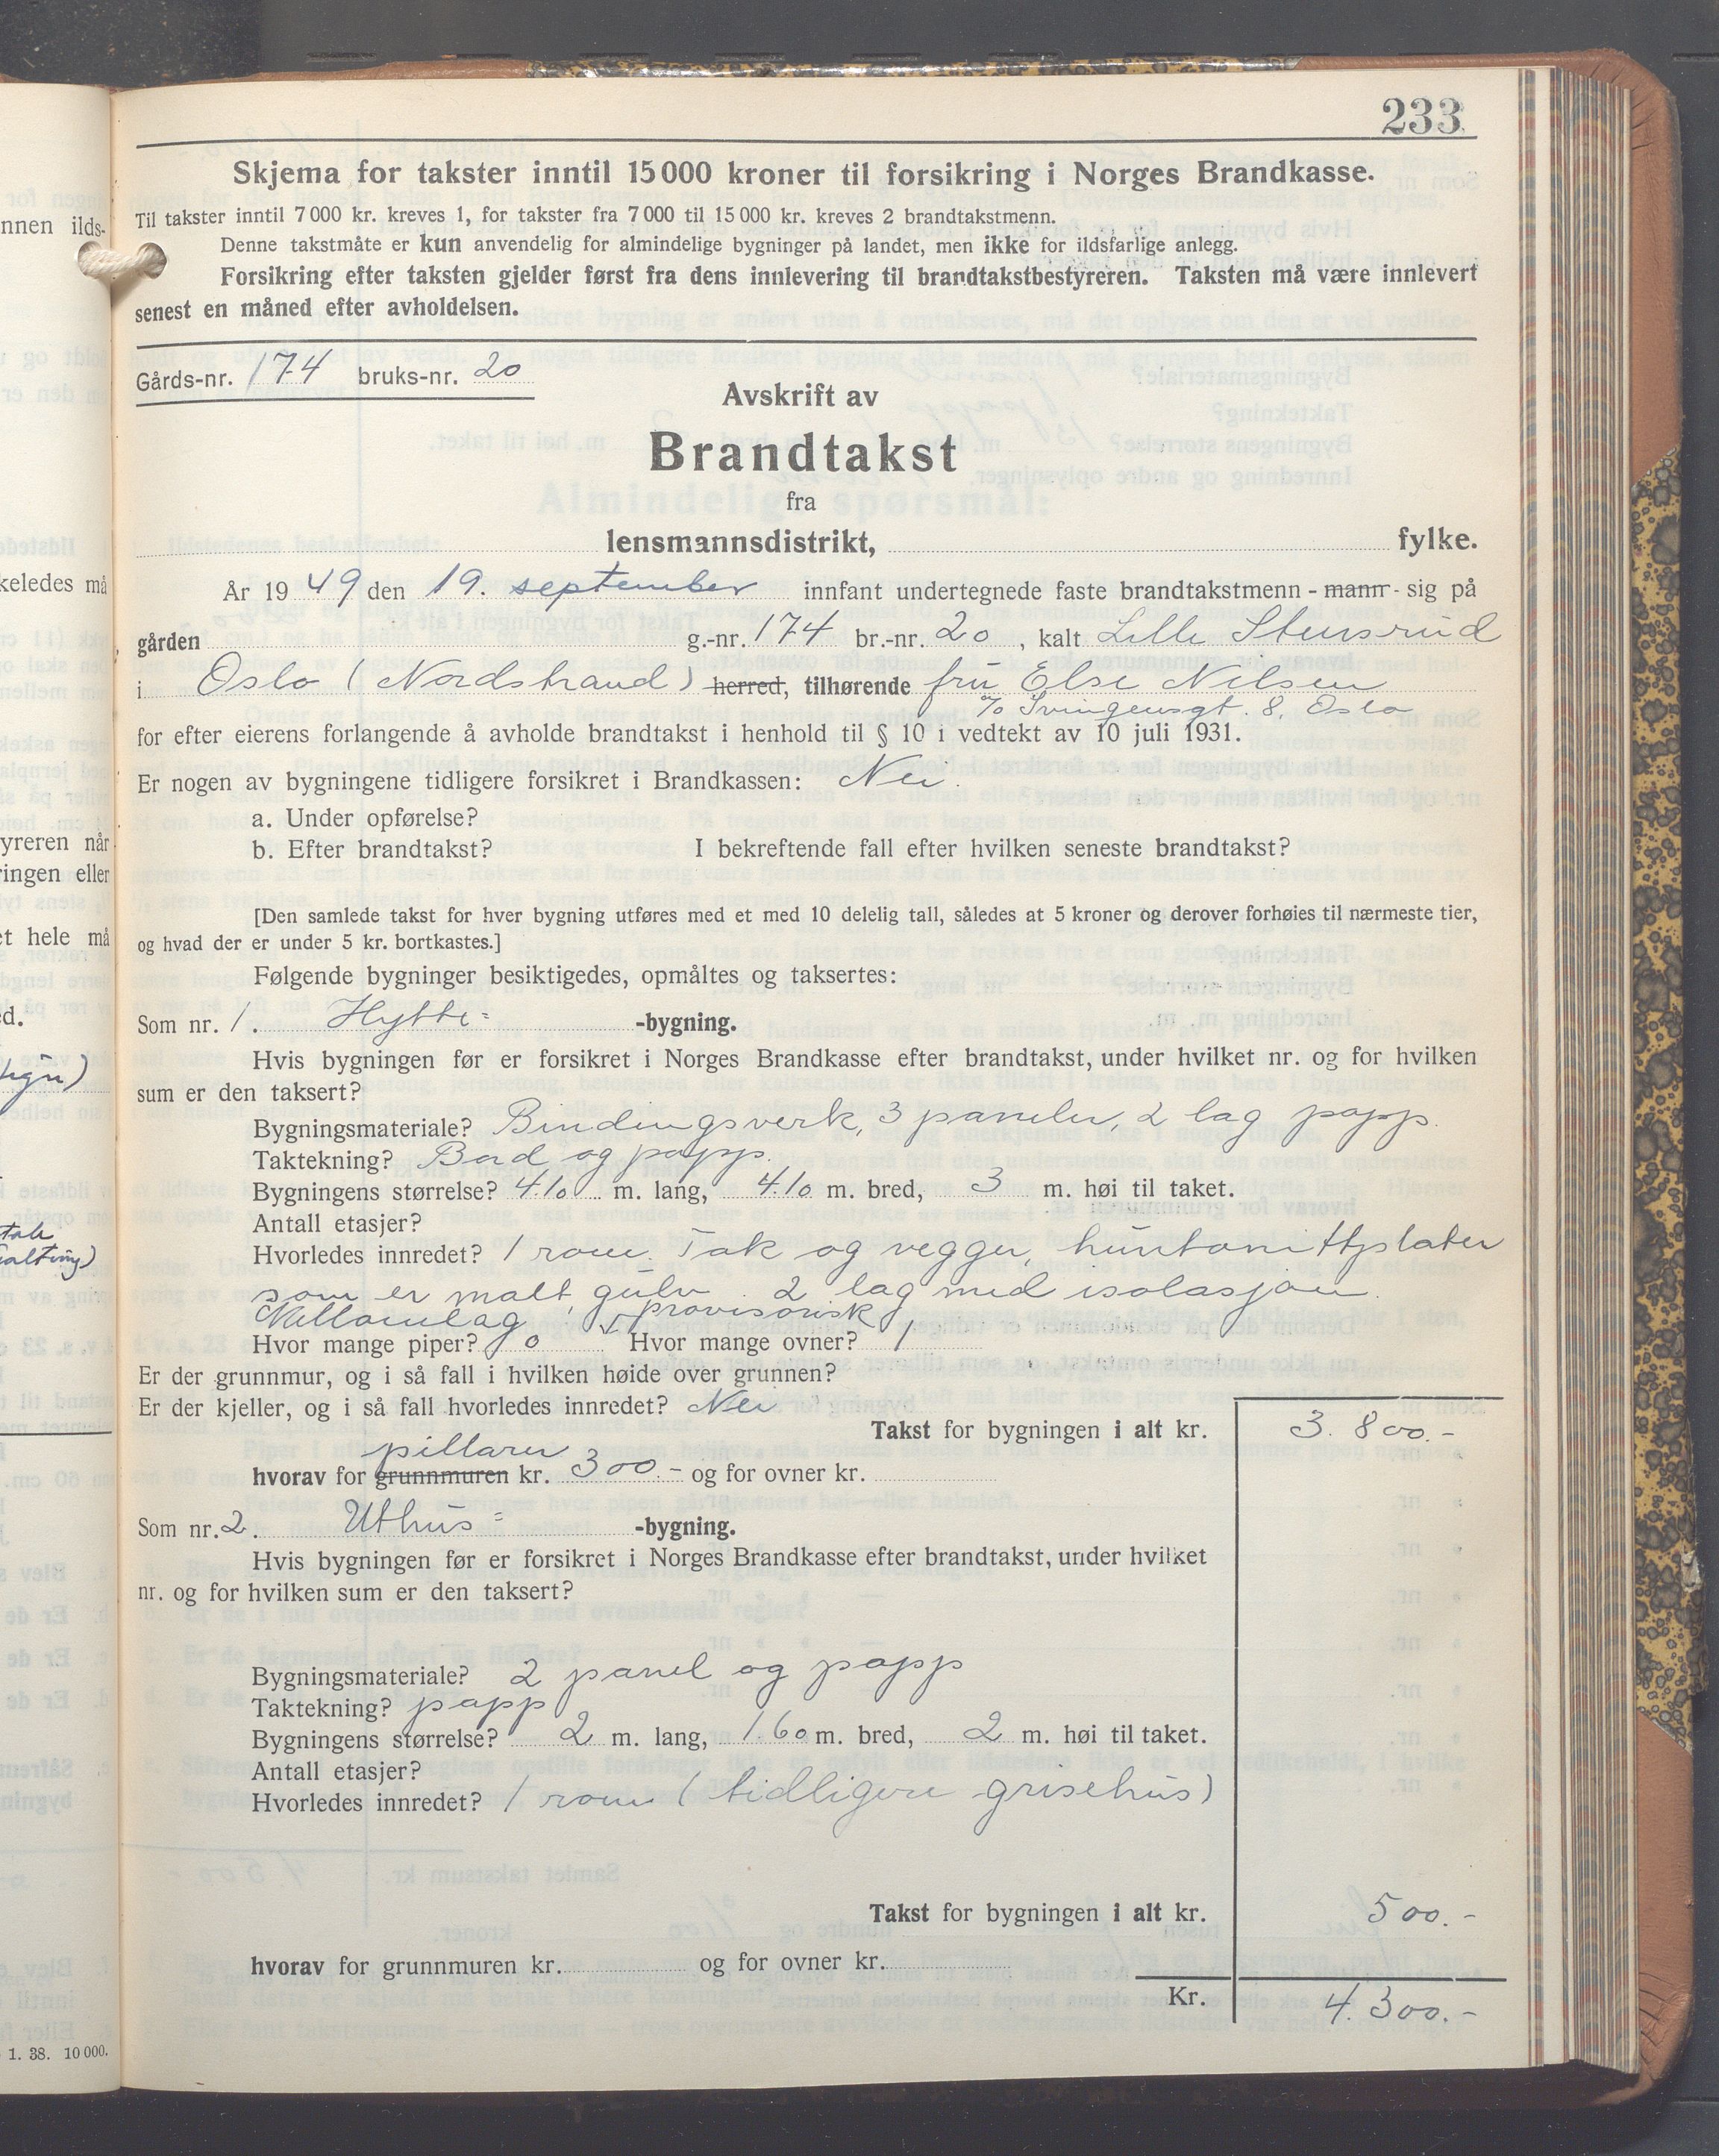 233
Skjema for takster inntil 15 000 kroner til forsikring i Norges Brandkasse.
Til takster inntil 7 000 kr. kreves 1, for takster fra 7 000 til 15 000 kr. kreves 2 brandtakstmenn.
Denne takstmåte er kun anvendelig for almindelige bygninger på landet, men ikke for ildsfarlige anlegg.
Forsikring efter taksten gjelder først fra dens innlevering til brandtakstbestyreren. Taksten må være innlevert
senest en måned efter avholdelsen.
Gårds-nr. 174 bruks-nr. 20
Avskrift av
Brandtakst
fra
lensmannsdistrikt, fylke.
År 1949 den 19. september innfant undertegnede faste brandtakstmenn - mann - sig på
gården g.-nr. 174 br.-nr. 20, kalt Lille Stensrud
i Oslo (Nordstrand) herred, tilhørende fru Else Nilsen
Oslo
for efter eierens forlangende å avholde brandtakst i henhold til § 10 i vedtekt av 10 juli 1931.
Er nogen av bygningene tidligere forsikret i Brandkassen: Nei.
a. Under opførelse?
b. Efter brandtakst? I bekreftende fall efter hvilken seneste brandtakst?
[Den samlede takst for hver bygning utføres med et med 10 delelig tall, således at 5 kroner og derover forhøies til nærmeste tier,
og hvad der er under 5 kr. bortkastes.]
Følgende bygninger besiktigedes, opmåltes og taksertes:
Som nr. 1. Hytte- -bygning.
Hvis bygningen før er forsikret i Norges Brandkasse efter brandtakst, under hvilket nr. og for hvilken
sum er den taksert?
Bygningsmateriale? Bindingsverk, 3 paneler, 2 lag papp.
Taktekning? Bord og papp.
Bygningens størrelse? 4.10 m. lang, 4.10 m. bred, 3 m. høi til taket.
Antall etasjer?
Hvorledes innredet? 1 rom. Tak og vegger, huntonittplater
som er malt, gulv 2 lag med isolasjon.
Mellomlag provisorisk
Hvor mange piper? 0 Hvor mange ovner? 1
Er der grunnmur, og i så fall i hvilken høide over grunnen?
Er der kjeller, og i så fall hvorledes innredet? Nei
Takst for bygningen i alt kr. 3.800.-
pillarer
hvorav for grunnmuren kr. 300.- og for ovner kr.
Som nr. 2. Uthus- -bygning.
Hvis bygningen før er forsikret i Norges Brandkasse efter brandtakst, under hvilket
nr. og for hvilken sum er den taksert?
Bygningsmateriale? 2 panel og papp
Taktekning? papp
Bygningens størrelse? 2 m. lang, 1.60 m. bred, 2 m. høi til taket.
Antall etasjer?
Hvorledes innredet? 1 rom (tidligere grisehus)
Takst for bygningen i alt kr. 500.-
hvorav for grunnmuren kr. og for ovner kr.
Kr. 4.300.-
nnen ilds-
keledes må
yreren når
ringen eller
et hele må
1. 38. 10 000.